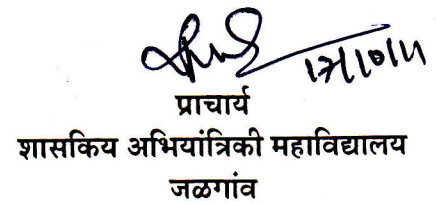 प्राचार्य
शासकिय अभियांत्रिकी महाविद्यालय
जळगांव